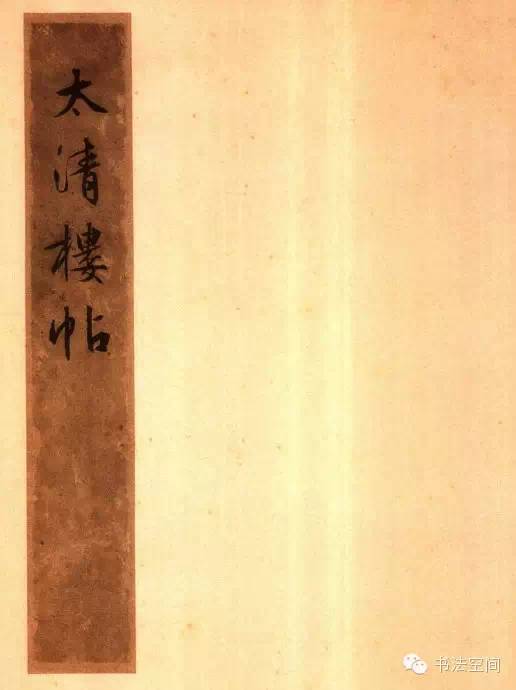 太清樓帖
书法空间